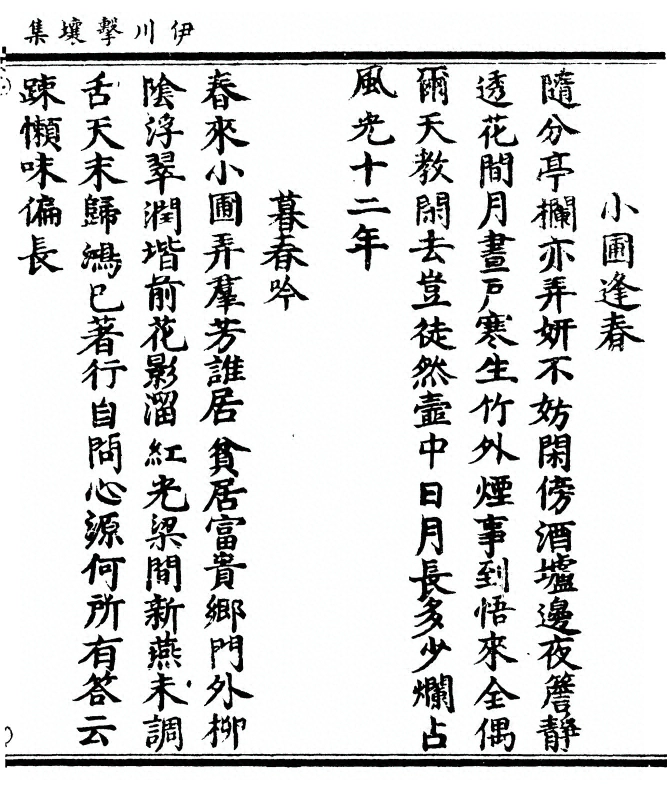 伊川擊壤集
小圃逢春
隨分亭欄亦弄妍不妨閑傍酒壚邊夜簷靜
透花間月晝戶寒生竹外煙事到悟來全偶
爾天教閑去豈徒然壺中日月長多少爛占
風光十二年
暮春吟
春來小圃弄羣芳誰居貧居富貴鄉門外柳
陰浮翠潤堦前花影溜紅光梁間新燕未調
舌天末歸鴻已著行自問心源何所有答云
踈懶味偏長